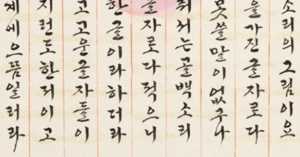 의 그림이요
을 가진 글자로다
못쓸 말이 없구나
는 글 백소리
글자로다 적으니
한글이라 하더라
고 고운 글자들이
지런도 한저이고
계에 으뜸일러라